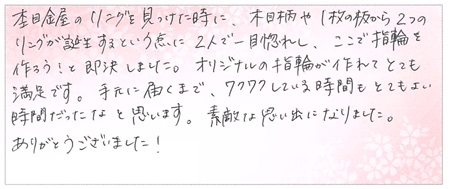 杢目金屋のリングを見つけた時に、木目柄や1枚の板から2つの
リングが誕生するという点に2人で一目惚れし、ここで指輪を
作ろう!と即決しました。オリジナルの指輪が作れてとても
満足です。手元に届くまで、ワクワクしている時間もとてもよい
時間だったなと思います。素敵な思い出になりました。
ありがとうございました!